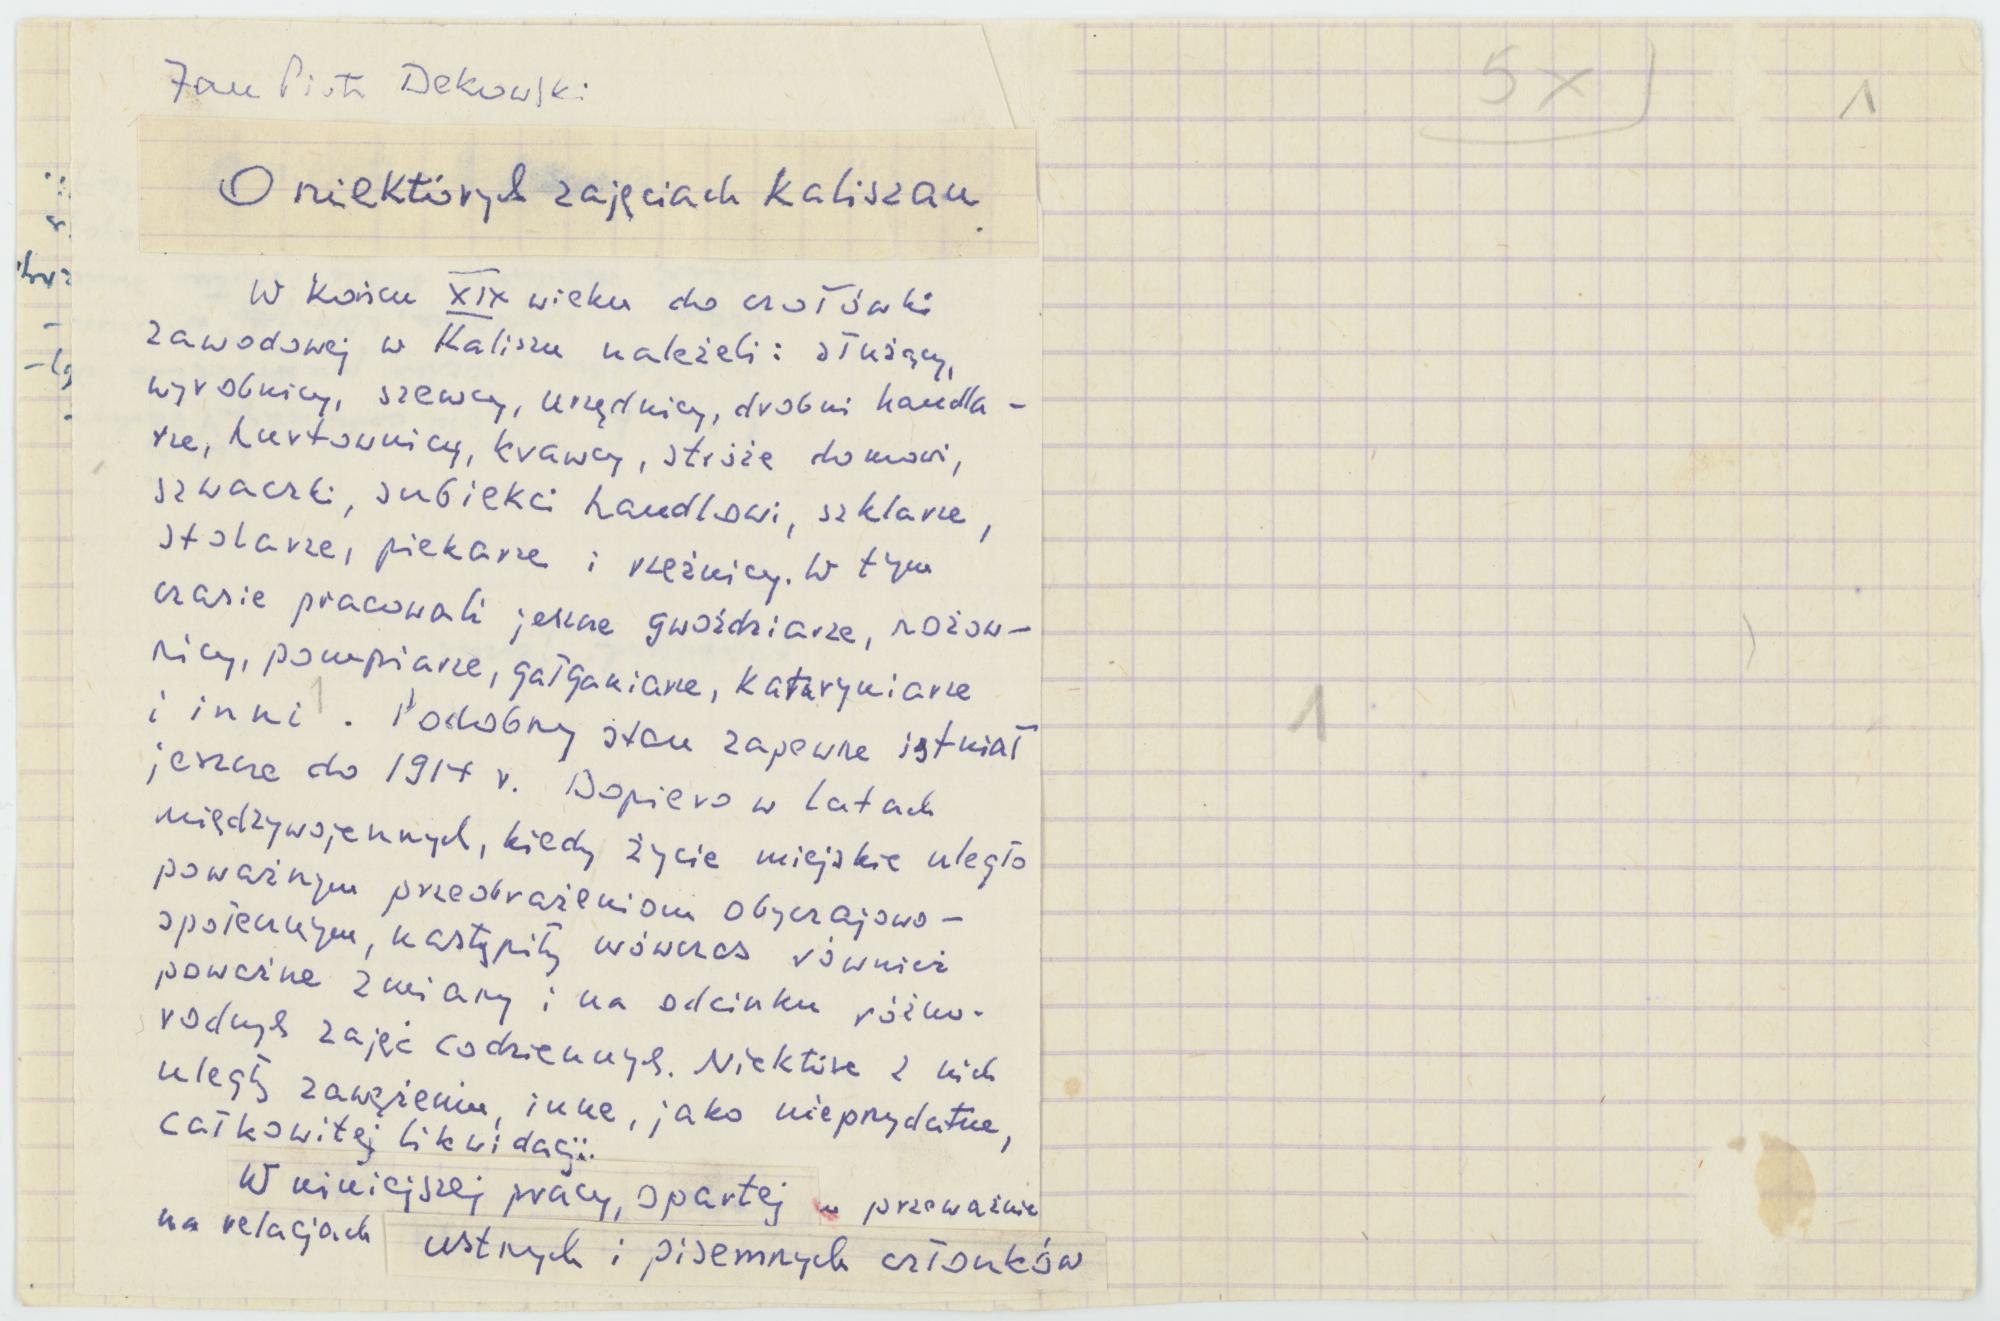 Jan Piotr Dekowski
O niektórych zajęciach Kaliszan.
W końcu XIX wieku do czołówki
zawodowej w Kaliszu należeli: służący,
wyrobnicy, szewcy, urzędnicy, drobni handla-
rze, hurtownicy, krawcy, stróże domowi,
szwaczki, subiekci handlowi, szklarze,
stolarze, piekarze i rzeźnicy. W tym
czasie pracowali jeszcze gwoździarze, nożow-
nicy, pompiarze, gałganiarze, kataryniarze
i inni. Podobny stan zapewne istniał
jeszcze do 1914 r. Dopiero w latach
międzywojennych, kiedy życie miejskie uległo
poważnym przeobrażeniom obyczajowo-
społecznym, nastąpiły wówczas również
poważne zmiany i na odcinku różno-
rodnych zajęć codziennych. Niektóre z nich
uległy zawężeniu, inne, jako nieprzydatne,
całkowitej likwidacji.
W niniejszej pracy, opartej przeważnie
na relacjach ustnych i pisemnych członków
5x
1
1